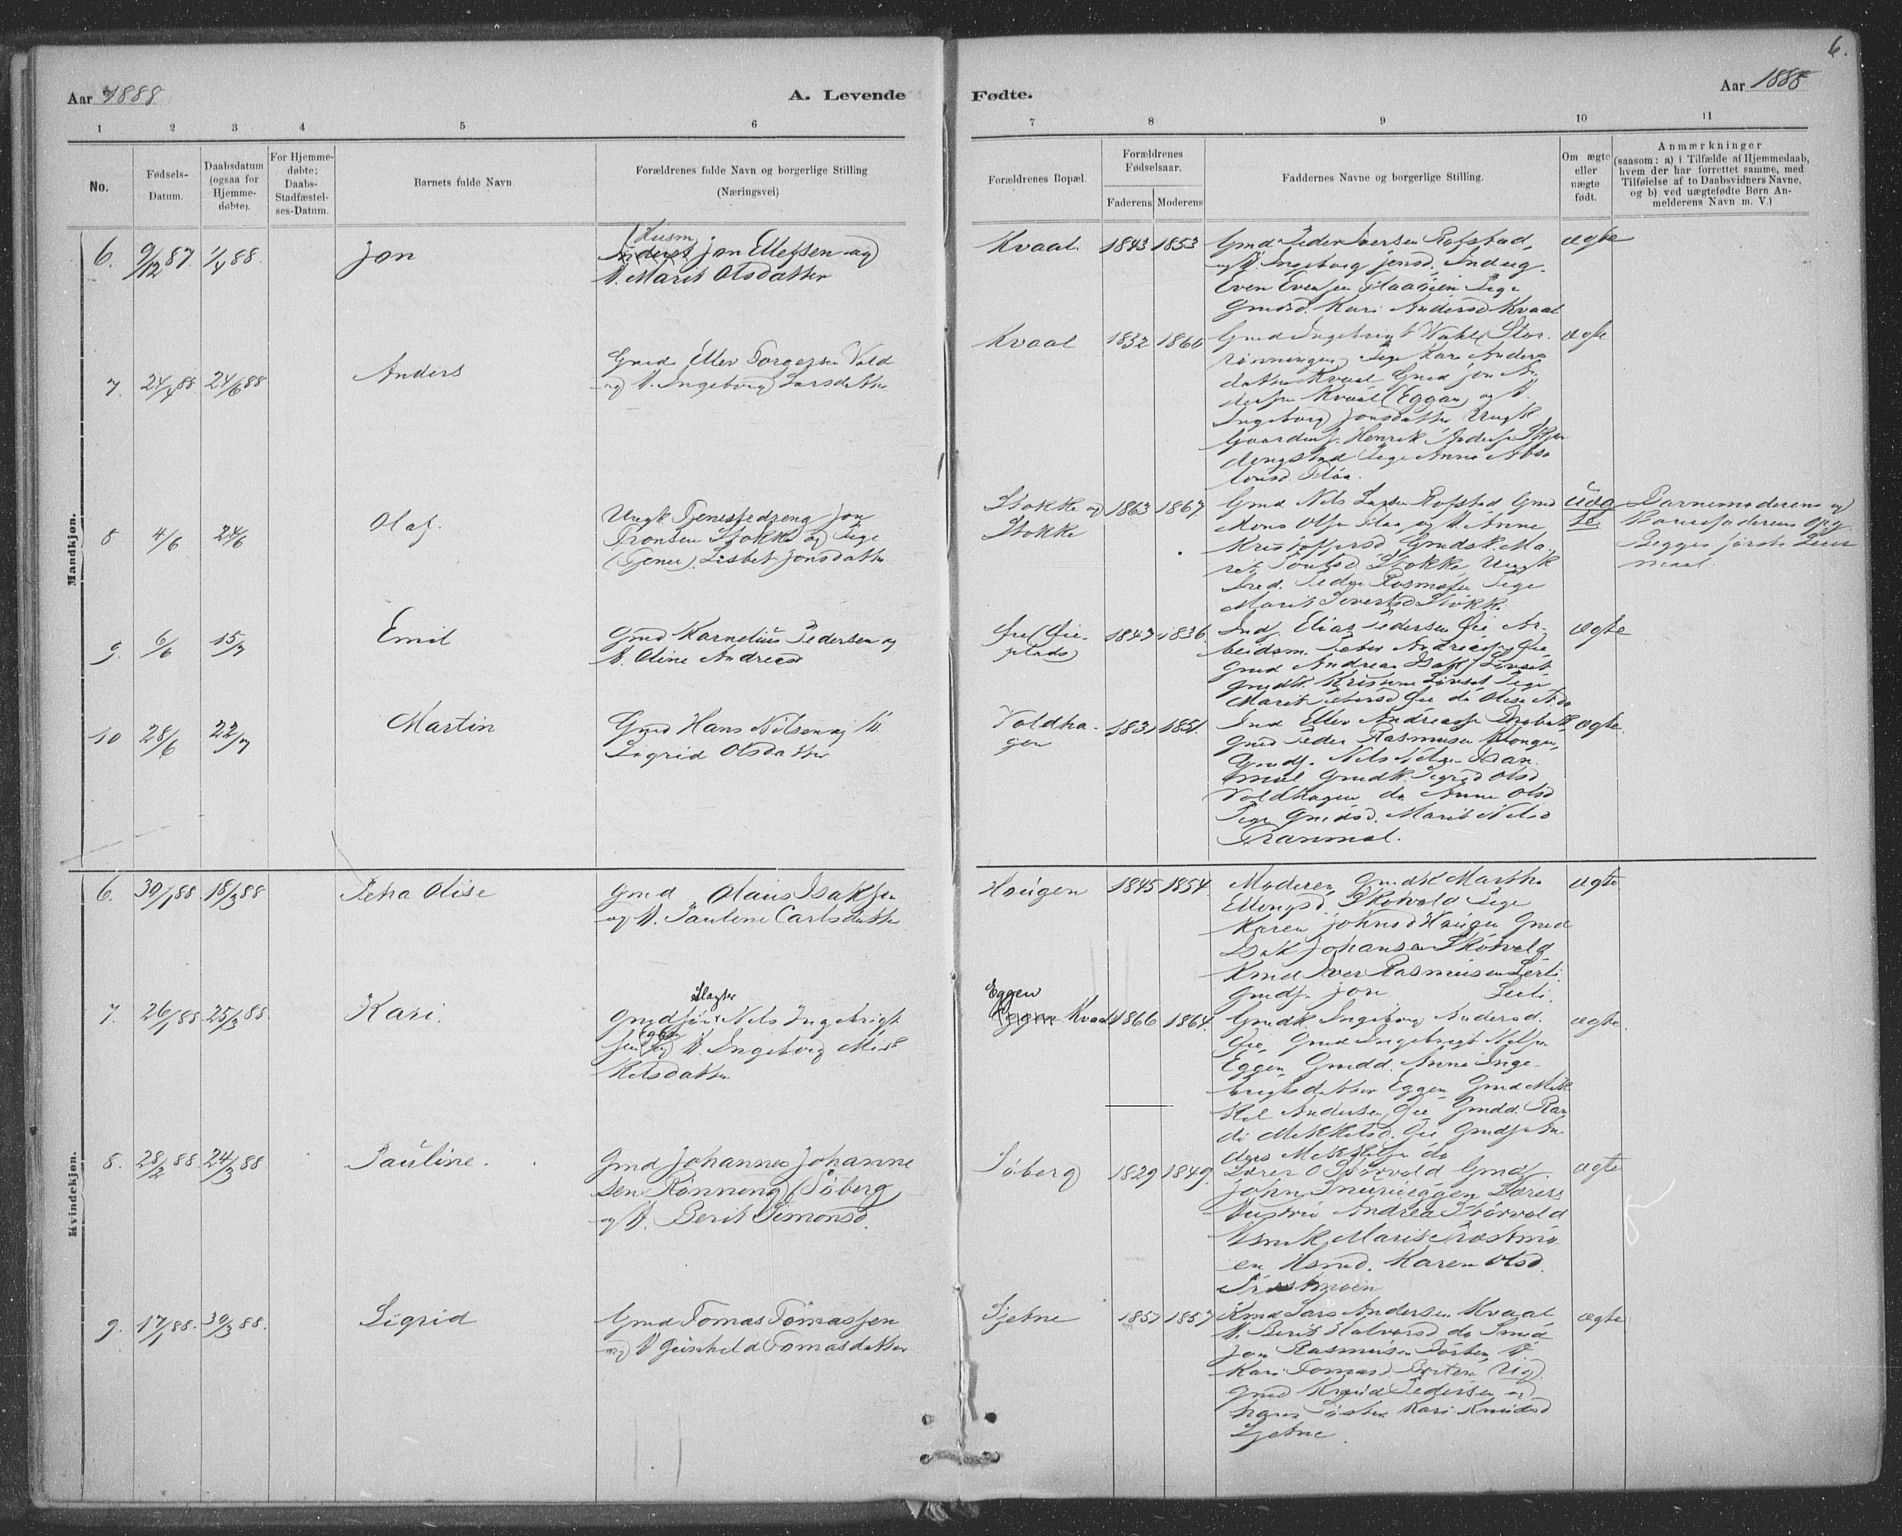 6.
Aar 1888
A. Levende
Fødte.
Aar 1888
1 2 3 4 5 6 7 8 9 10 11
No.
Fødsels-
Datum.
Daabsdatum
(ogsaa for
Hjemme-
døbte).
For Hjemme-
døbte:
Daabs-
Stadfæstel-
ses-Datum.
Barnets fulde Navn.
Forældrenes fulde Navn og borgerlige Stilling
(Næringsvei)
Forældrenes Bopæl.
Forældrenes
Fødselsaar.
Faderens Moderens
Faddernes Navne og borgerlige Stilling.
Om ægte
eller
uægte
født.
Anmærkninger
(saasom: a) i Tilfælde af Hjemmedaab,
hvem der har forrettet samme, med
Tilføielse af to Daabsvidners Navne,
og b) ved uægtefødte Børn An-
melderens Navn m. V.)
Mandkjøn.
6. 9/12 87. 1/4 88. Jon
Husm
Jon Ellefsen og
K. Marit Olsdatter
Kvaal. 1843 1853
Gmd Peder Iversen Rofstad,
og K. Ingeborg Jonsd. Inderg.
Even Evensen Pige
Gmdsd. Kari Andersd Kvaal
ægte
7. 24/4 88. 24/6 88 Anders
Gmd Ellev Torgersen Vold
og K. Ingeborg Larsdatter
Kvaal 1832 1860
Gmd Ingebrigt Wahl Stor-
rønningen, Pige Kari Anders
datter Kvaal Gmd Jon An
dersen Kvaal (Eggan) og K.
Ingeborg Jonsdatter Ungk
Gaardm f. Henrik Andersen Skjer
dingstad Pige Anne Abso
lonsd. Fløa.
ægte
8 4/6 24/6 Olaf.
Ungk Tjenestedreng Jon
Tronsen Stokke og Pige
(Tjener) Lisbet Jonsdatter
Stokke og
Stokke
1863 1867
Gmd Nils Larsen Rofstad Gmd
Mons Olsen Fløa og K. Anne
Kristoffersd Gmdsk. Ma-
ret Stokke, Ungk
Fred. Peder Rasmusen Pige
Marit Sivertsd Stokke
uæg
te
Barnemoderens og
Barnefaderens Opg.
Begges første Leier
maal.
9. 6/6 15/7 Emil
Gmd Karnelius Pedersen og
K. Oline Andreasd
Øie (Øie-
plads)
1847 1836.
Ind. Elias Pedersen Øie Ar-
beidsm. Peter Andreasen Øie
Gmd Andreas Isaks. Løvset
Gmdk. Kristine Løvset Pige
Marit Petersd Øie do Olise
ægte
10 28/6 22/7 Martin
Gmd Hans Nilsen og K.
Sigrid Olsdatter
Voldha-
gen
1831 1851.
Ind Ellev Andreasen
Gmd Peder Rasmusen Klongen,
Gmds. Nils Nilsen Tran
mæl Gmdk. Sigrid Olsd
Voldhagen do Anne Olsd
Pige Gmdsd. Marit Nilsd
Tranmæl.
ægte.
Kvindekjøn.
6. 30/1 88 18/3 88 Petra Olise
Gmd Olaus Isaksen
og K. Pauline Carlsdatter
Hougen 1845 1854.
Moderen, Gmdk Martha
Ellingsd. Skotvold Pige
Karen Johnsd Hougen Gmd
Isak Johansen Skotvold
Kmd Iver Rasmusen Lerli
Gmds. Jon Lerli.
ægte
7. 26/1 88 25/3 88. Kari.
Slagter
Gmdsøn Nils Ingebrigt
sen og K. Ingeborg Mik
kelsdatter
Eggen
Kvaal 1866 1864.
Gmdk. Ingeborg Andersd.
Øie, Gmd Ingebrigt Nilsen
Eggen, Gmdd. Anne Inge-
brigtsdatter Eggen, Gmd Mik
kel Andersen Øie Gmdd. Ran
di Mikkelsd. Øie Gmds. An
ders Mikkelsen do
ægte
8. 28/2 88. 24/3 88 Pauline.
Gmd Johannes Johanne
sen Rønning (Søberg
og K. Berit Simonsd.
Søberg 1829 1849.
Lærer O Skotvold Gmds.
John Snuruseggen Lærers
Hustru Andrea Skotvold
Marit Præstmo
en Kand. Karen Olsd.
Præstmoen
ægte
9. 17/1 88. 30/3 88. Sigrid
Gmd Tomas Tomassen
og K Gunhild Tomasdatter
Gjetne 1857 1857
Kmd Lars Andersen Kvaal
K. Berit Halvorsd do Smed
Jon Rasmusen Losten K
Kari Tomasd
Gmd Knud Pedersen og
hans Søster Kari Knudsd
Gjetne.
ægte